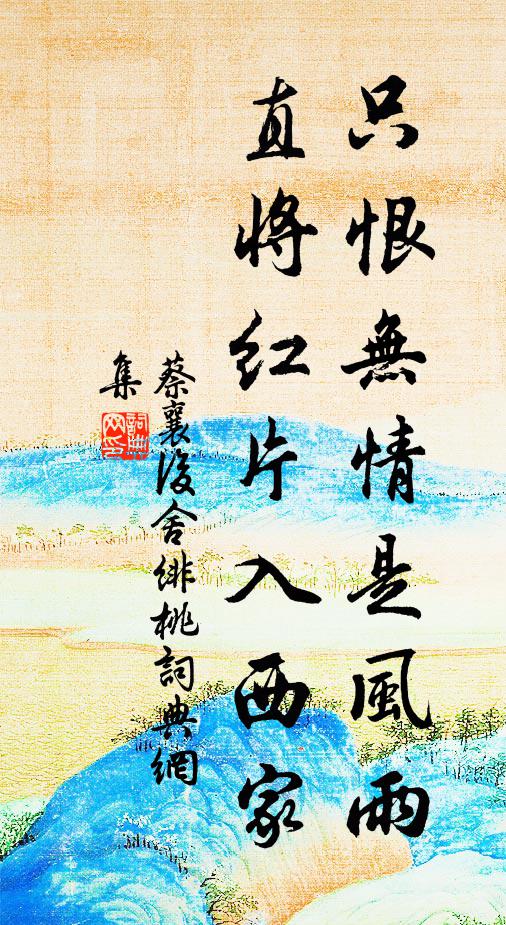 只恨無情是風雨
直將紅片入西家
蔡襄後舍緋桃詞典網
集
詞典網印